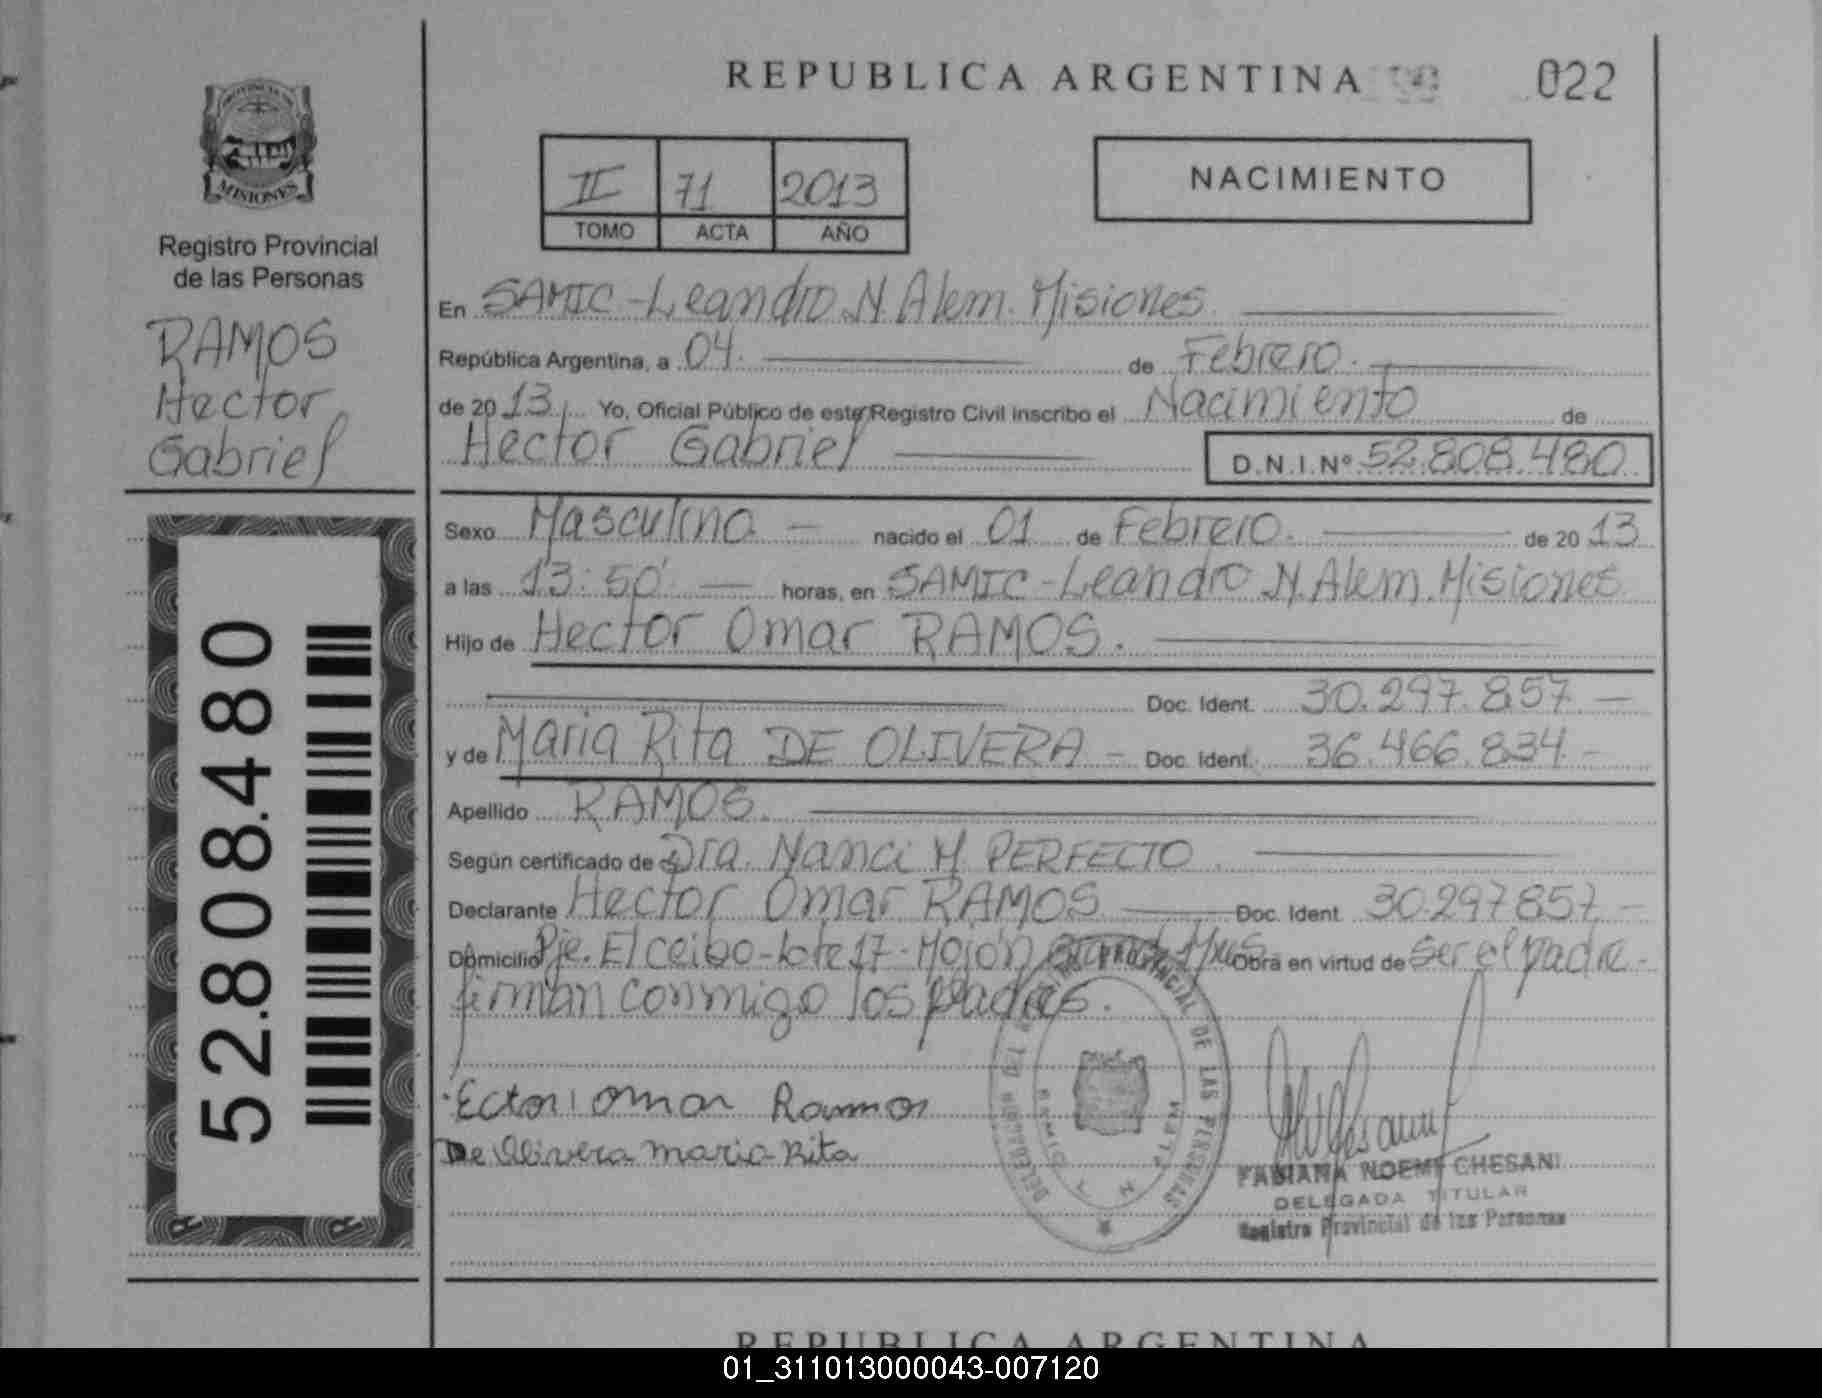 REPUBLICA ARGENTINA
022
PROVINCIA DE
MISIONES
Registro Provincial
de las Personas
RAMOS
Hector
Gabriel
52.808.480
II 71 2013
TOMO ACTA AÑO
NACIMIENTO
En SAMIC - Leandro N. Alem. Misiones.
República Argentina, a 04. de Febrero.
de 2013. Yo, Oficial Público de este Registro Civil inscribo el Nacimiento de
Hector Gabriel D.N.I.Nº 52.808.480
Sexo Masculino - nacido el 01 de Febrero. de 2013
a las 13:50' horas, en SAMIC - Leandro N. Alem. Misiones
Hijo de Hector Omar RAMOS.
Doc. Ident. 30.297.857 -
y de Maria Rita DE OLIVERA - Doc. Ident. 36.466.834 -
Apellido RAMOS.
Según certificado de Dra. Nanci M. PERFECTO
Declarante Hector Omar RAMOS Doc. Ident. 30.297.857 -
Domicilio Pje. El ceibo - lote 17 - Mojón Obra en virtud de ser el padre -
firman conmigo los padres.
Ector omar Ramos
De Olivera maria Rita
PROVINCIAL DE LAS PERSONAS
FABIANA NOEMI CHESANI
DELEGADA TITULAR
Registro Provincial de las Personas
REPUBLICA ARGENTINA
01_311013000043-007120